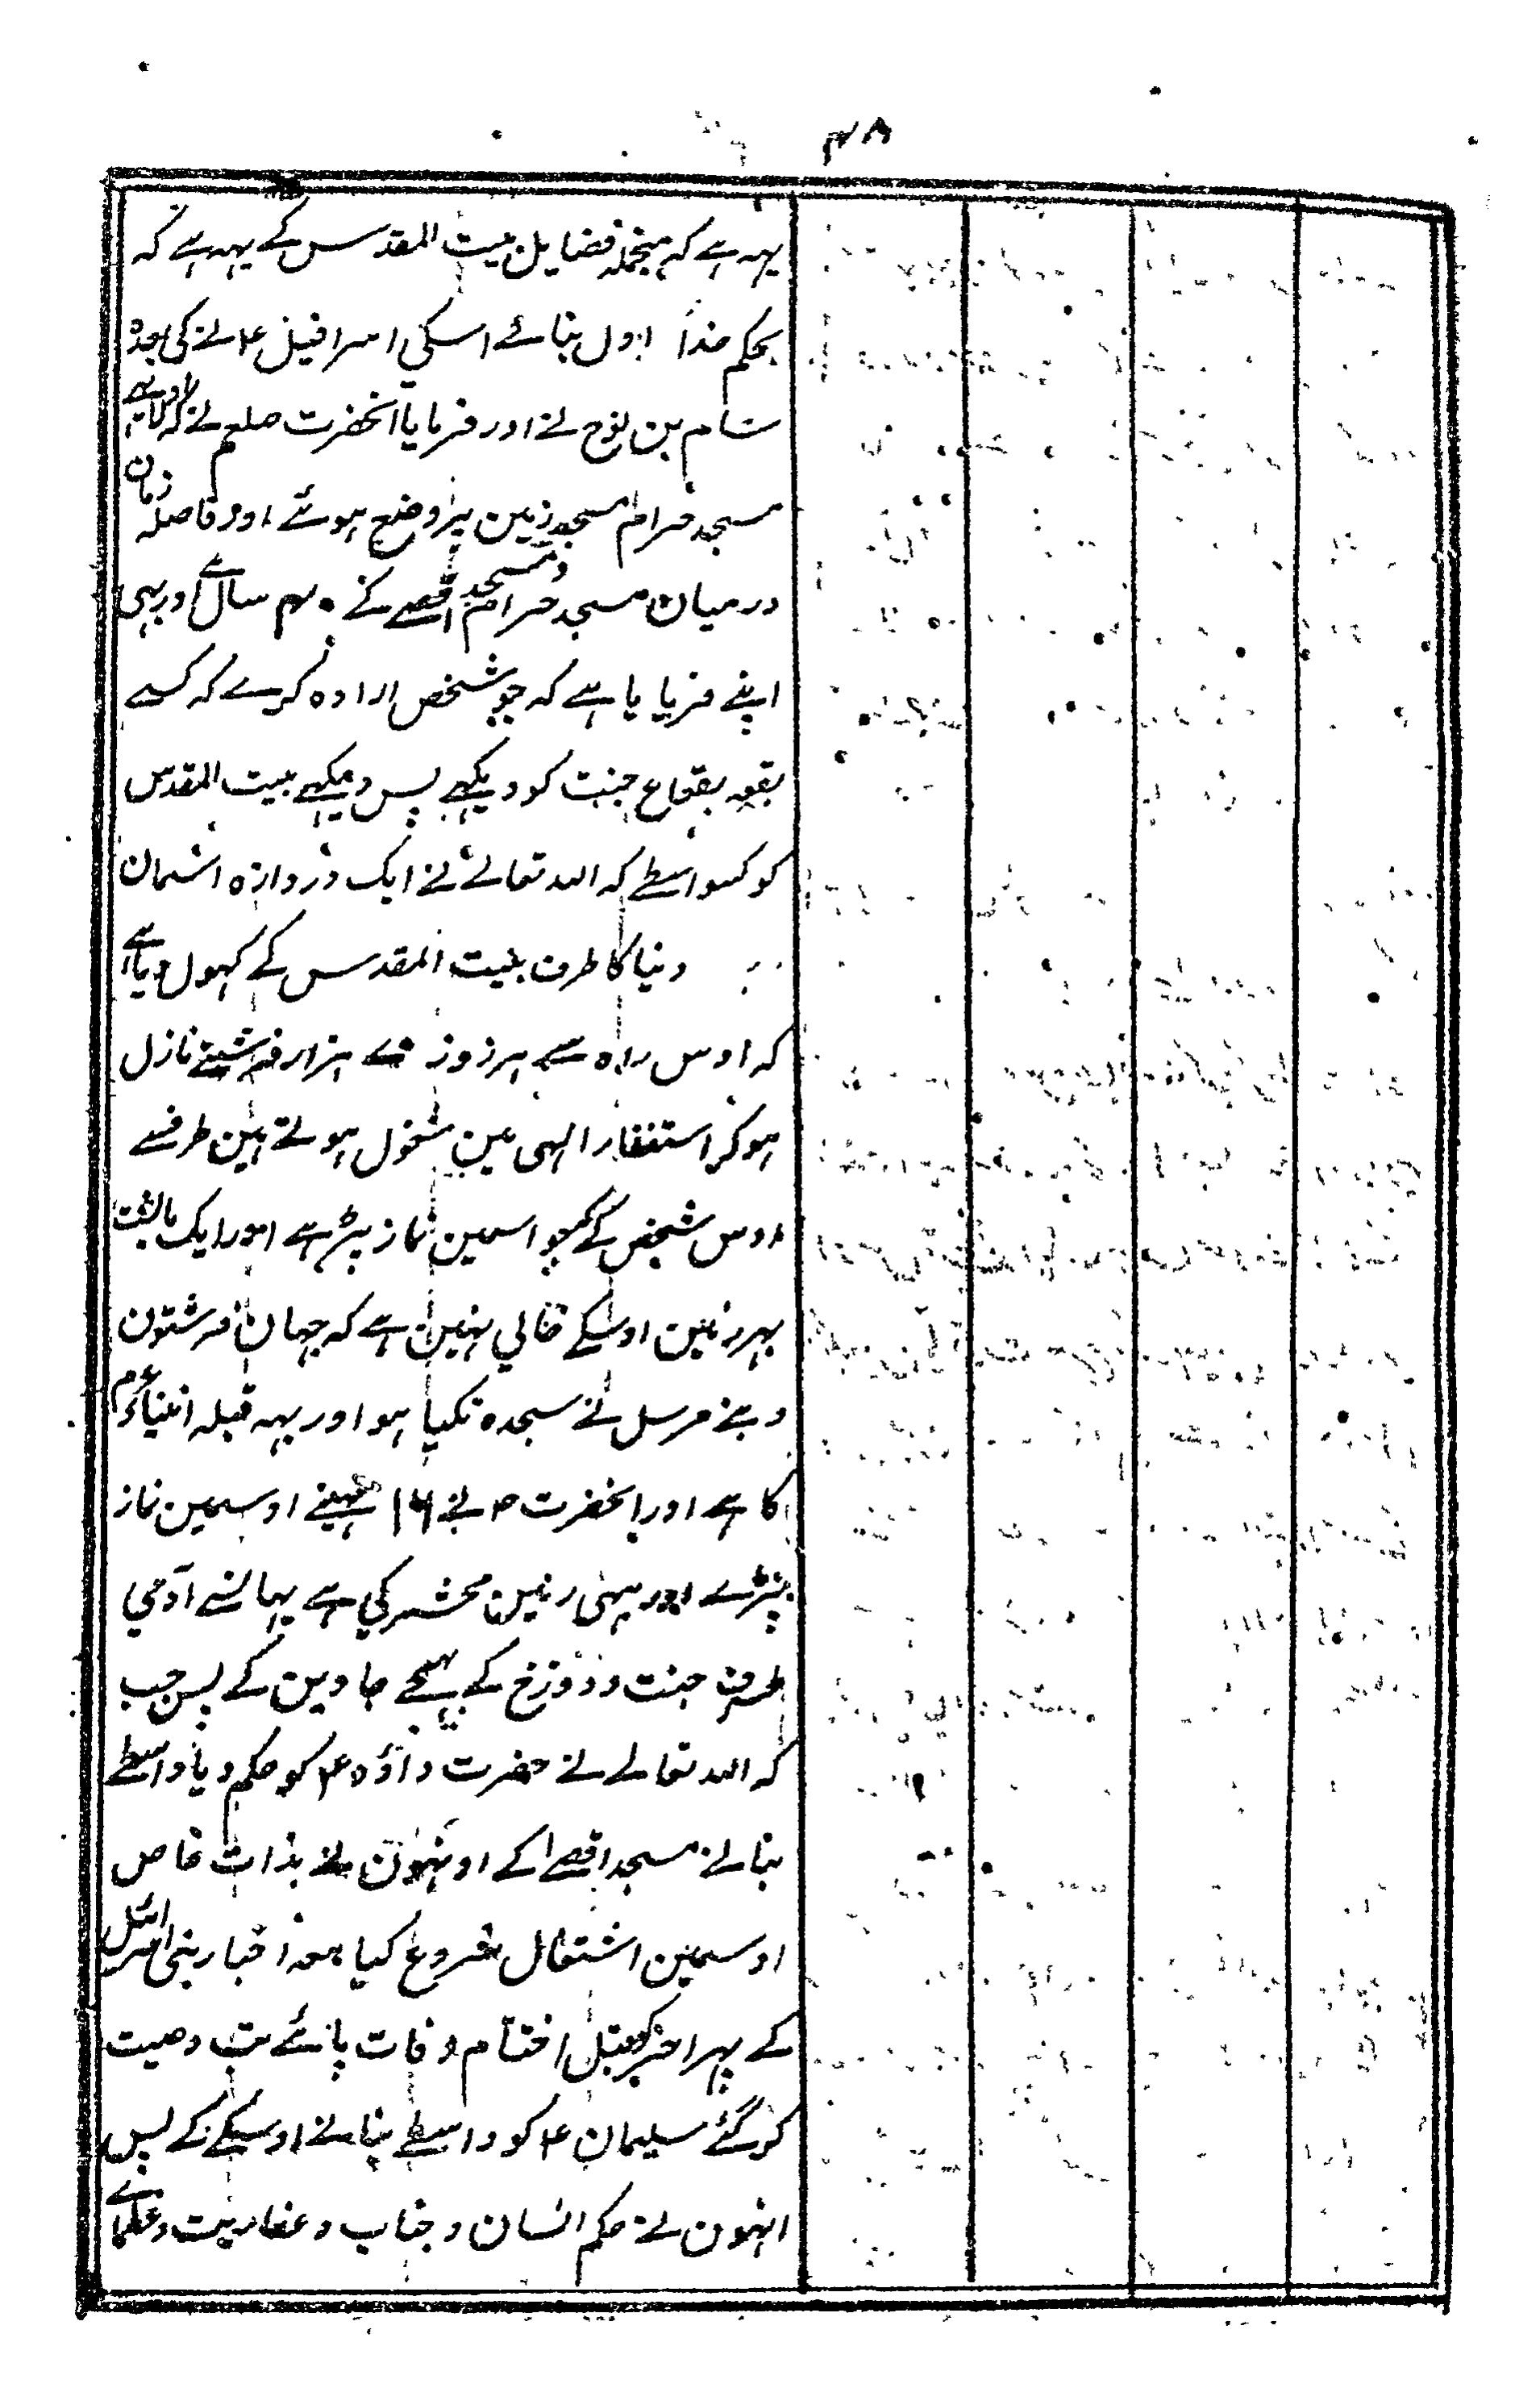 ۴۸
یہہ ہے کہ منجملہ فضایل بیت المقدس کے یہہ ہے کہ
بحکم خدا اول بنائے اسکی اسرافیل ع نے کی بعدہ
سام بن نوح نے اور فرمایا آنحضرت صلعم نے کہ
مسجد حرام مسجد زمین پر وضع ہوئے اور فاصلہ زمان
درمیان مسجد حرام و مسجد اقصے کے ۴۰ سال ہے اور یہی
اپنے فرمایا ہے کہ جو شخص ارادہ کرے کہ کسے
بقعہ بقاع جنت کو دیکہے پس دیکہے بیت المقدس
کو کسواسطے کہ اللہ تعالے نے ایک دروازہ اسمان
دنیا کا طرف بیت المقدس کے کہول دیا ہے
کہ اوس راہ سے ہر روز ہزار فرشتے نازل
ہوکر استغفار الہی مین مشغول ہوتے ہین طرفسے
اوس شخص کے جو اسمین نماز پڑہے اور ایک بالشت
بہر زمین اوسکے خالی نہین ہے کہ جہان فرشتون
و بنے مرسل نے سجدہ نکیا ہو اور یہہ قبلہ انبیاء عم
کا ہے اور انحضرت ص نے ۱۶ مہینے اوسمین نماز
پڑہے اور یہی زمین محشر کی ہے یہانسے آدمی
طرف جنت و دوزخ کے بہیجے جاوین کے پس جب
کہ اللہ تعالے نے حضرت داؤد ع کو حکم دیا واسطے
بنانے مسجد اقصے کے اونہون نے بذات خاص
اوسمین اشتغال شروع کیا معہ اخبار بنی اسرائیل
کے پہر اخیر کو قبل اختتام وفات پائے تب وصیت
کر گئے سلیمان ع کو واسطے بنانے اوسکے کے پس
انہون نے حکم انسان و جناب و عفاریت و علمائے